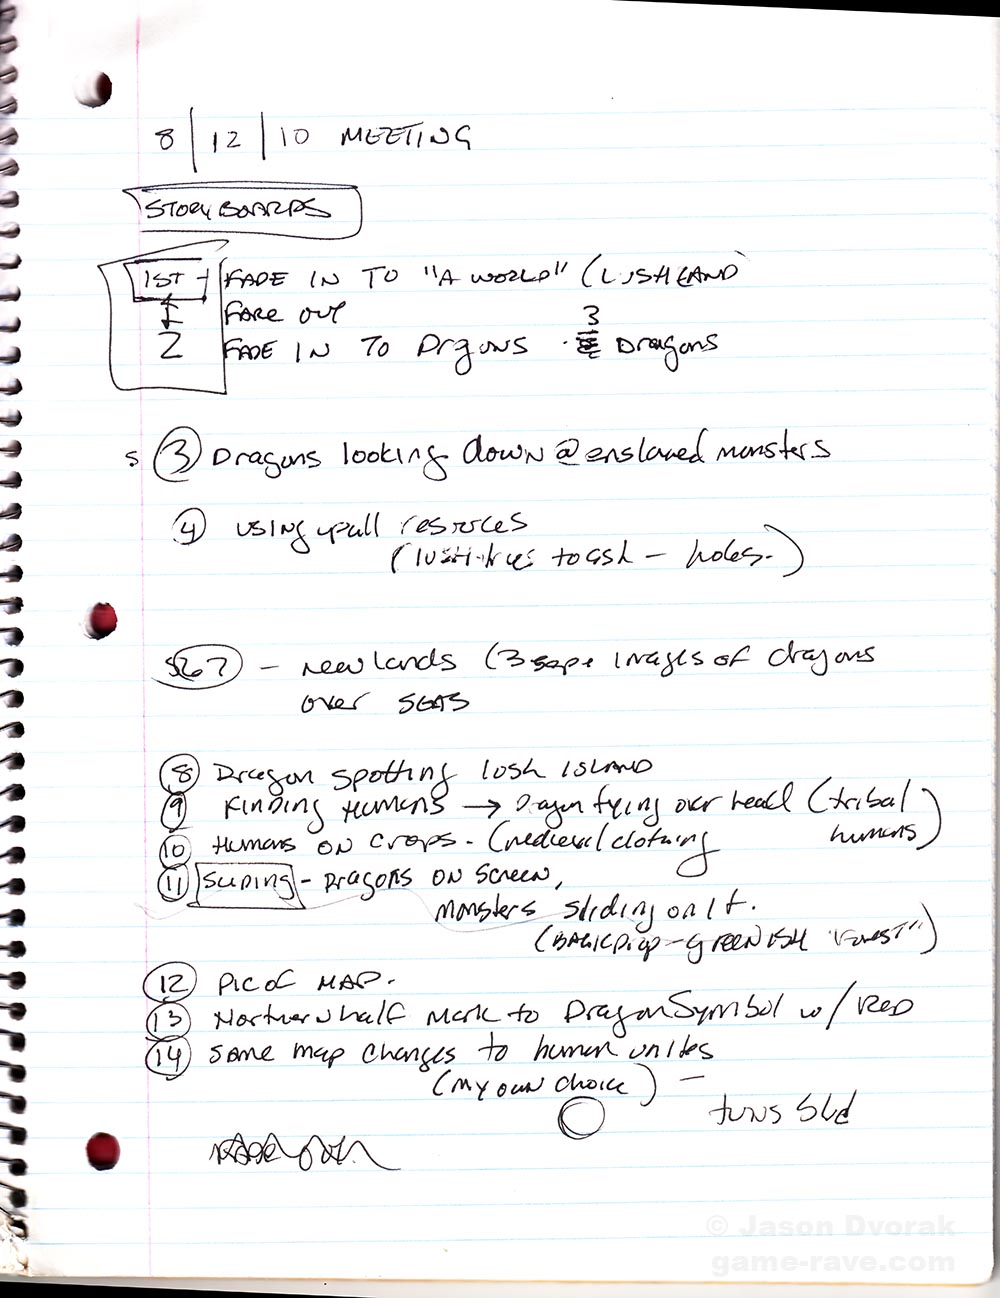 8/12/10 MEETING
STORYBOARDS
1ST - FADE IN TO "A WORLD" (LUSH LAND)
FADE OUT
2 FADE IN TO Drgons 3 Dragons
S 3 Dragons looking down @ enslaved monsters
4 USING up all resources
(lush trees to ash - holes.)
567 - new lands (3 images of dragons
over SEAS
8 Dragon spotting lush ISLAND
9 FINDING HUMANS → Dragon flying over head (tribal
humans)
10 HUMANS ON CROPS - (medieval clothing
11 SLIDING - DRAGONS ON SCREEN,
monsters sliding on it.
(BACKdrop - GREENISH "Forest")
12 PIC OF MAP.
13 Northern half mark to Dragon Symbol w/ RED
14 Same map changes to human unites
(my own choice) -
turns
© Jason Dvorak
game-rave.com